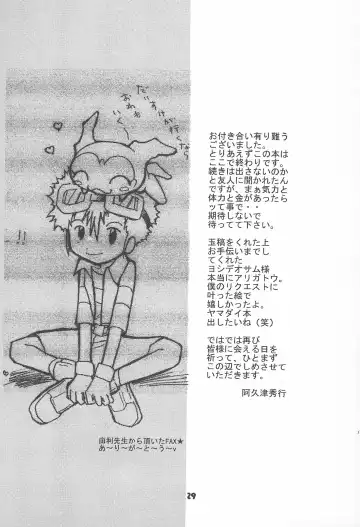 お付き合い有り難う
ございました。
とりあえずこの本は
ここで終わりです。
続きは出さないのか
と友人に聞かれたん
ですが、まぁ気力と
体力と金があったら
ッて事で・・
期待しないで
待ってて下さい。
玉稿をくれた上
お手伝いまでし
てくれた
ヨシデオサム様
本当にアリガトウ。
僕のリクエストに
叶った絵で
嬉しかったよ。
ヤマダイ本
出したいね（笑）
ではでは再び
皆様に会える日を
祈って、ひとまず
この辺でしめさせて
いただきます。
阿久津秀行
由利先生から頂いたFAX★
あ～り～が～と～う～v
29